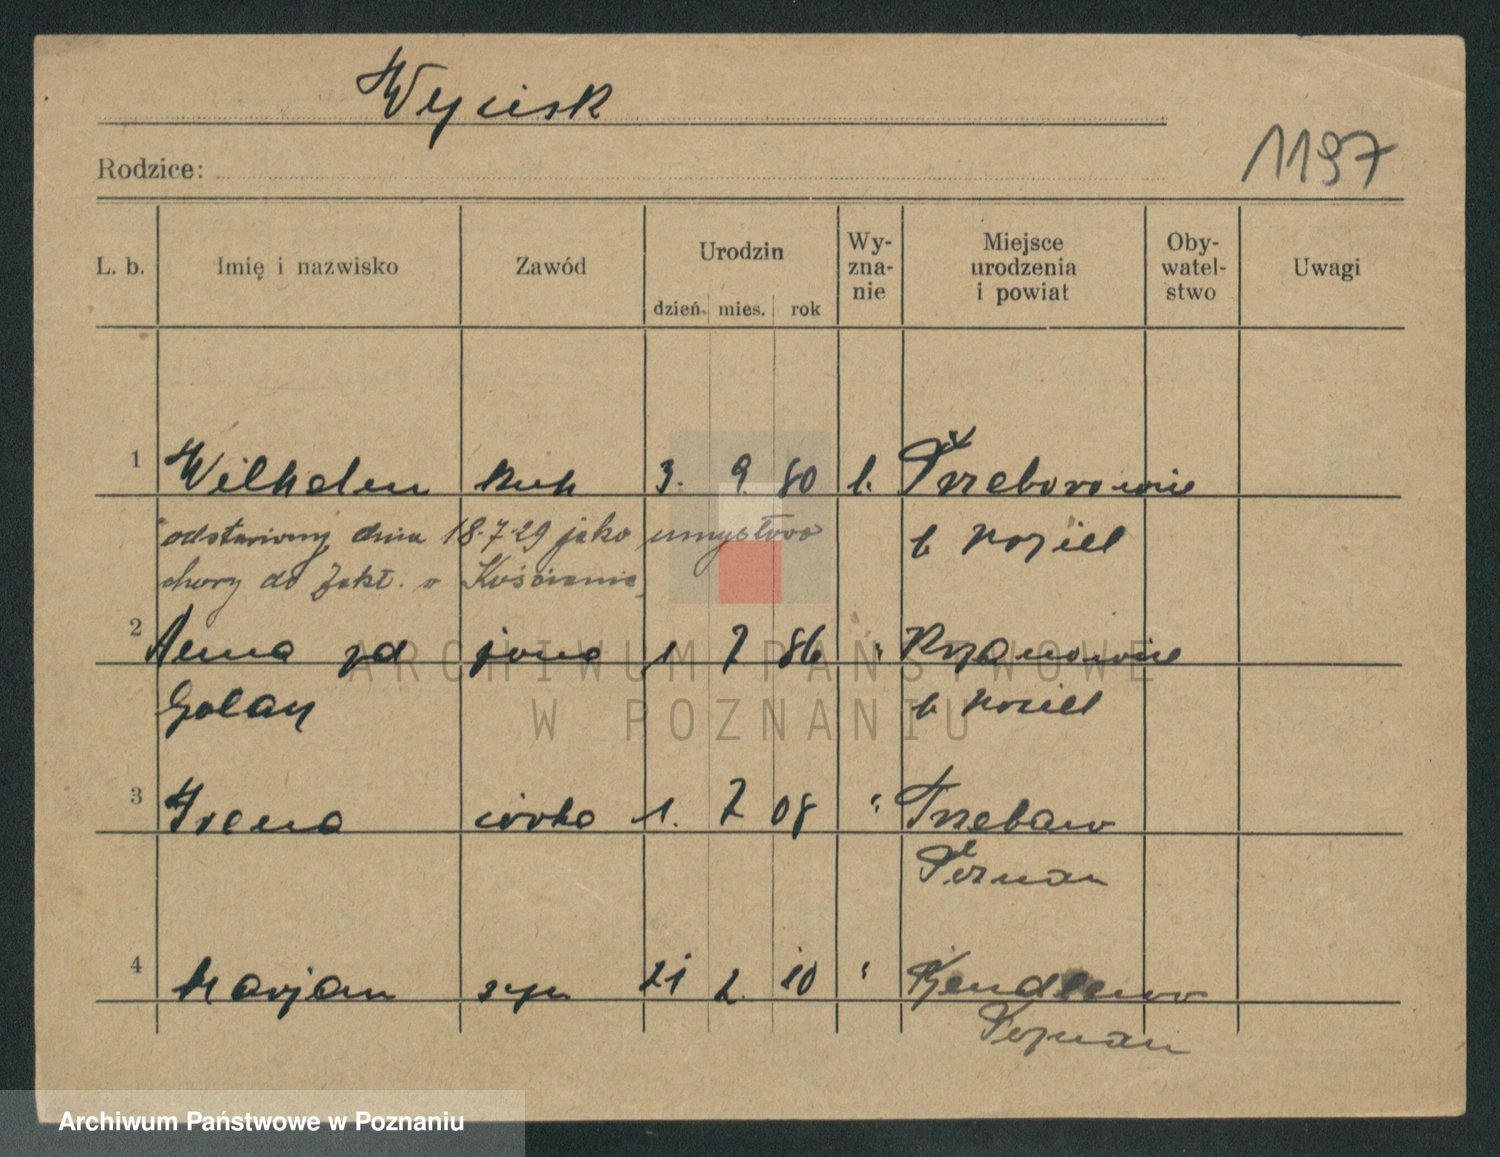 Wycisk
Rodzice:
1197
L. b. Imię i nazwisko Zawód Urodzin dzień mies. rok Wy-zna-nie Miejsce urodzenia i powiat Oby-watel-stwo Uwagi
1 Wilhelm 3. 9. 80 k.
odstawiony dnia 18-7-29 jako umysłowo
chory do Zakł. w Kościanie
b Koziel
2 Anna zd żona 1 7 86 "
Golay b Koziel
3 Irena córka 1. 7 08 " Trzebaw
Poznan
4 Marjan syn 21 2. 10 "
Poznan
ARCHIWUM PAŃSTWOWE
W POZNANIU
Archiwum Państwowe w Poznaniu